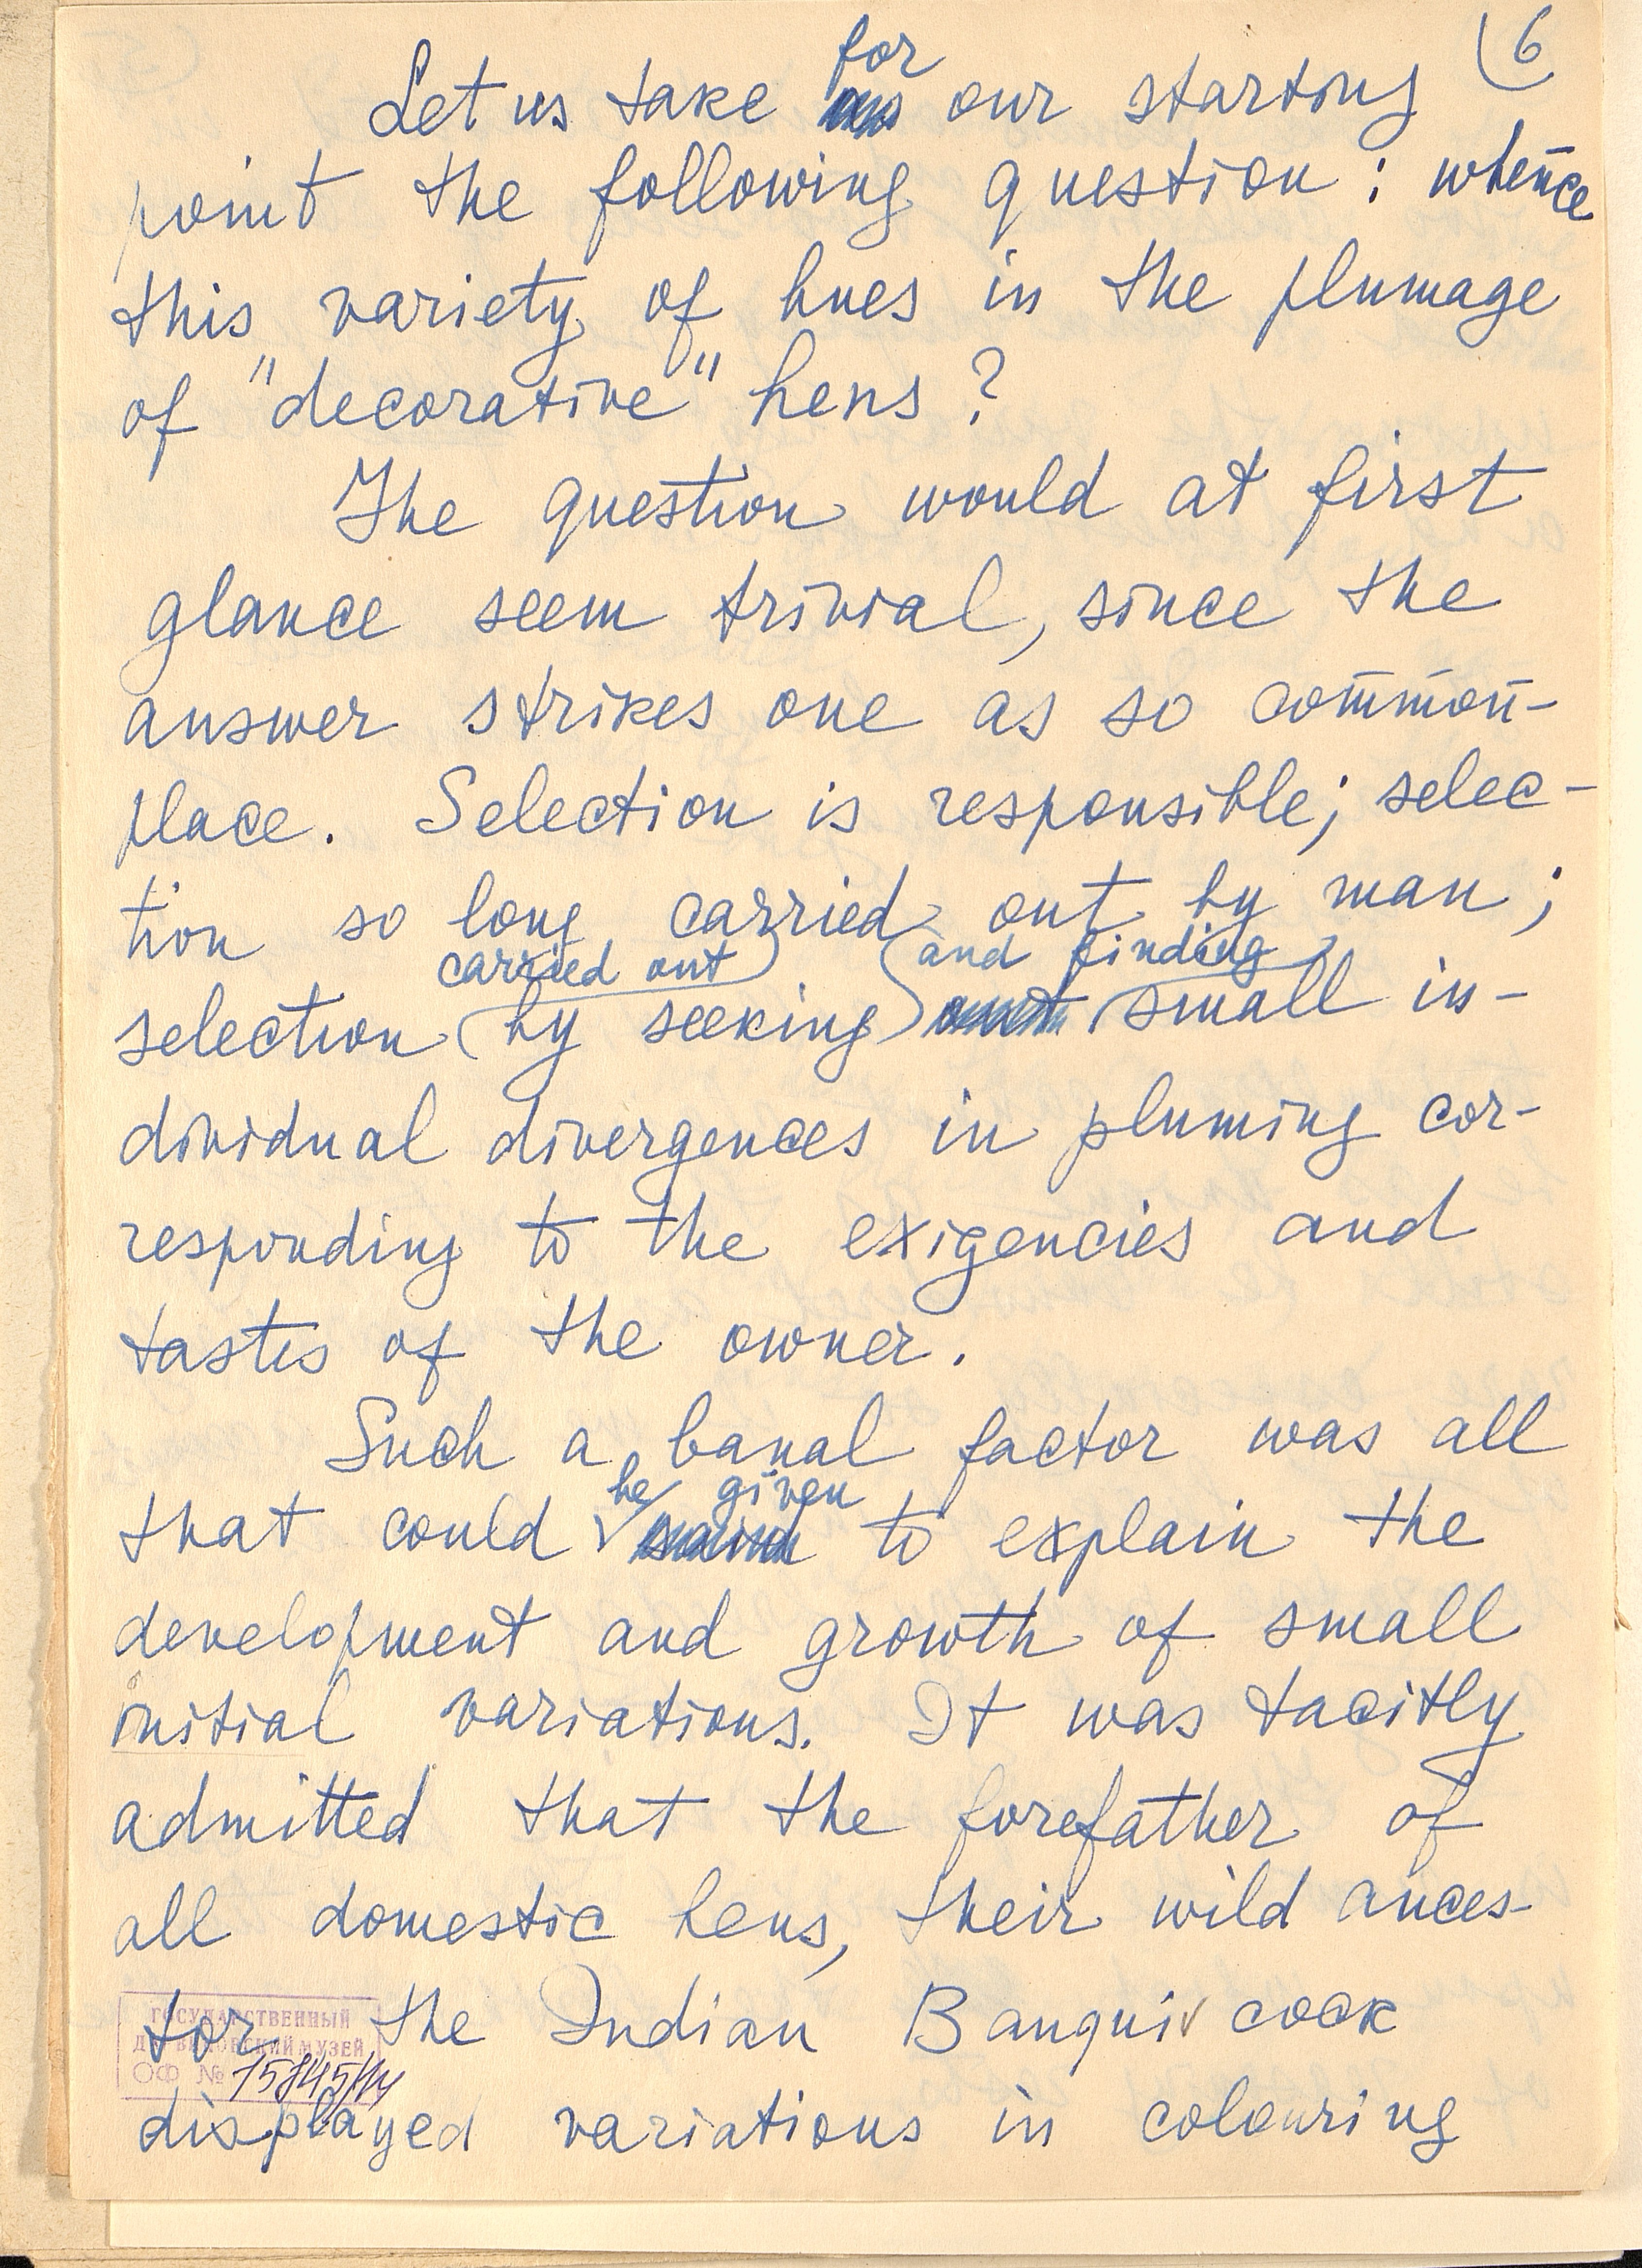 6
Let us take for our starting
point the following question: whence
this variety of hues in the plumage
of "decorative" hens?
The question would at first
glance seem trivial, since the
answer strikes one as so common-
place. Selection is responsible; selec-
tion so long carried out by man;
carried out and finding
selection by seeking small in-
dividual divergences in pluming cor-
responding to the exigencies and
tastes of the owner.
Such a banal factor was all
be given
that could to explain the
development and growth of small
initial variations. It was tacitly
admitted that the forefather of
all domestic hens, their wild ances-
tor the Indian Banquiv cock
displayed variations in colouring
ГОСУДАРСТВЕННЫЙ
ДАРВИНОВСКИЙ МУЗЕЙ
ОФ №